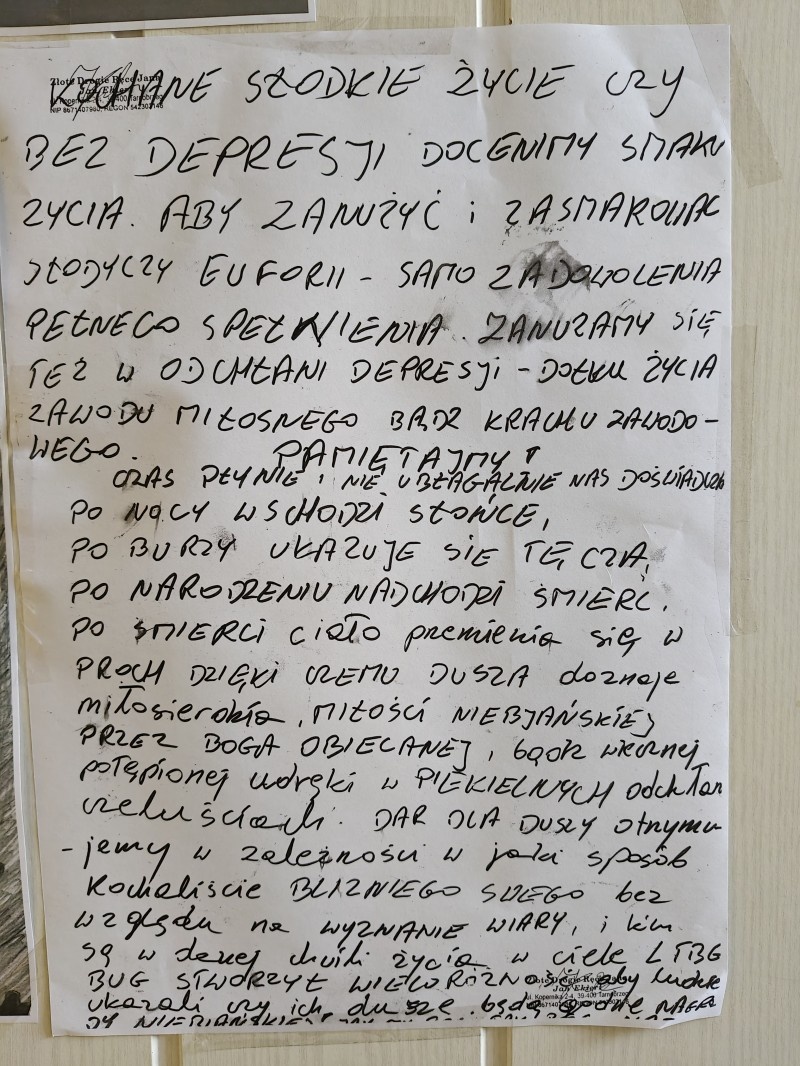 Złote Drogie Ręce Jana
Jan Ektert
NIP 8671407980, REGON
KOCHANE SŁODKIE ŻYCIE CZY
BEZ DEPRESJI DOCENIMY SMAKU
ŻYCIA. ABY ZANUŻYĆ i ZASMAKOWAĆ
SŁODYCZY EUFORII - SAMO ZADOWOLENIA
PEŁNEGO SPEŁNIENIA. ZANUŻAMY SIĘ
TEŻ W ODCHŁANI DEPRESJI - DOŁKU ŻYCIA
ZAWODU MIŁOSNEGO BĄDZ KRACHU ZAWODO-
WEGO. PAMIĘTAJMY!
CZAS PŁYNIE I NIE UBŁAGALNIE NAS DOŚWIADCZA
PO NOCY WSCHODZI SŁOŃCE,
PO BURZY UKAZUJE SIE TĘCZA,
PO NARODZENIU NADCHODZI ŚMIERĆ.
PO ŚMIERCI ciało premienia się w
PROCH DZIĘKI CZEMU DUSZA doznaje
miłosierdzia, MIŁOŚCI NIEBJAŃSKIEJ
PRZEZ BOGA OBIECANEJ, bądz wiecznej
potępionej udręki w PIEKIELNYCH odchłan
czeluściach. DAR DLA DUSZY otrzymu
-jemy w zależności w jaki sposób
Kochaliście BLIZNIEGO SWEGO bez
względu na WYZNANIE WIARY, i kim
są w danej chwili życia w ciele LTBG
BUG STWORZYŁ WIELO RÓZNOŚĆ aby ludzie
ukazali czy ich dusze będą godne NAGRO
DY NIEBIAŃSKIEJ
Złote Drogie Ręce Jana
Jan Ektert
ul. Kopernika 2-4, 39-400 Tarnobrzeg